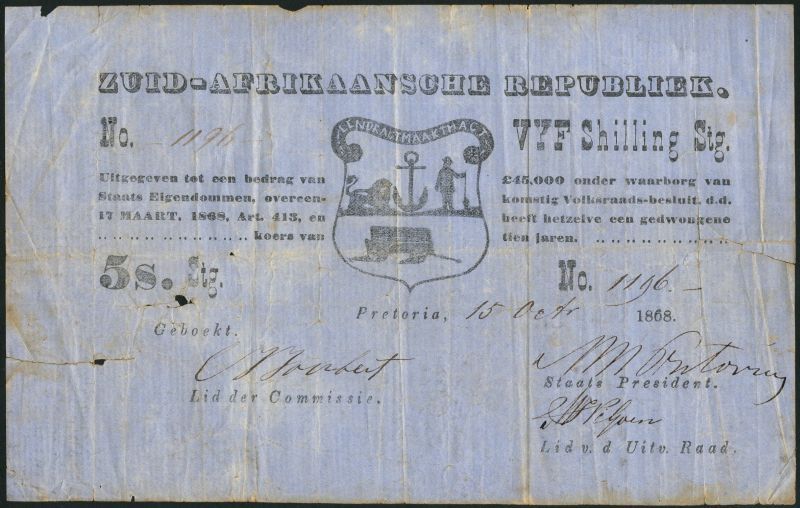 ZUID-AFRIKAANSCHE REPUBLIEK.
No. - 1196 -
EENDRAGTMAAKTMAGT
VYF Shilling Stg.
Uitgegeven tot een bedrag van £45,000 onder waarborg van
Staats Eigendommen, overeen- komstig Volksraads-besluit. d.d.
17 MAART, 1868, Art. 413, en heeft hetzelve een gedwongene
.. .. .. .. .. .. .. .. .. koers van tien jaren. .. .. .. .. .. .. .. ..
5s. Stg.
No. 1196.-
Pretoria, 15 Octr 1868.
Geboekt.
Joubert
M W Pretorius
Lid der Commissie.
Staats President.
Lid v. d Uitv. Raad.